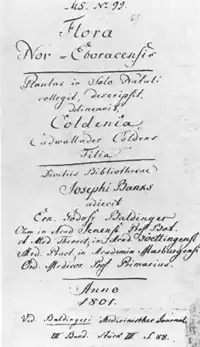 MS. No 99.
Flora
Nov-Eboracensis
Plantas in Solo Natali
collegit, descripsit,
delineavit,
Coldenia
Cadwallader Coldens
Filia
Divitis Bibliothecae
Josephi Banks
adiecit
Ern. Godofr. Baldinger
Olim in Acad Jenensi Prof Bot.
et Med Theoret, in Acad Goettingensi
Med. Pract, in Academia Marburgensi
Ord. Medicor. Prof. Primarius.
Anno
1801.
Vid Baldingers Medicinisches Journal
III Band. Stück III S. 88.